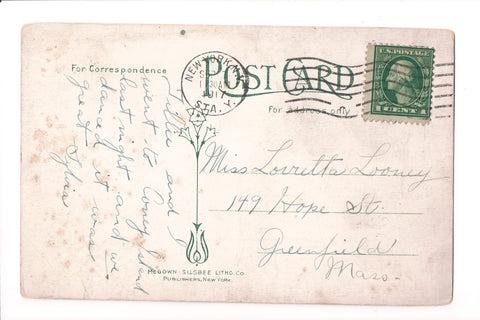 POST CARD
For Correspondence
For address only
NEW YORK, N.Y.
1917
STA.
Tillie and I
went to Coney Island
last night and we
danced it was
great Sylvia
Miss Lorretta Looney
149 Hope St.
Greenfield
Mass.
McGOWN-SILSBEE LITHO. CO.
PUBLISHERS, NEW YORK.